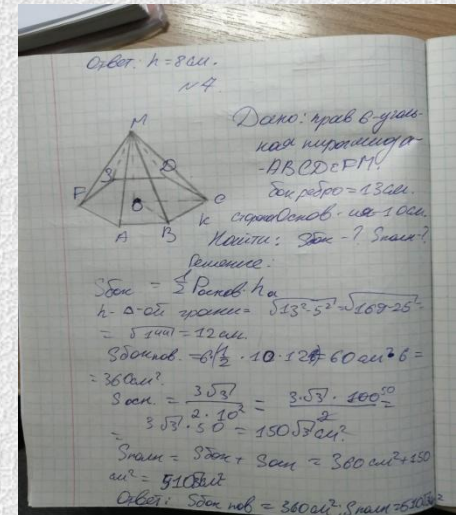 Ответ: h = 8 см.
№4
Дано: прав 6-уголь-
ная пирамида-
-ABCDEFM.
бок ребро = 13 см.
сторона основ-ия - 10 см.
Найти: Sбок - ? Sполн - ?
Решение:
M
D
F
O
C
K
A
B
Sбок = 1/2 Pоснов · ha
h - Δ-ой грани = √13²-5² = √169-25 =
= √144 = 12 см.
Sбок пов. = 6(1/2 · 10 · 12) = 60 см² · 6 =
= 360 см².
Sосн. = 3√3 / 2 · 10² = 3·√3 · 100 / 2 =
= 3√3 · 50 = 150√3 см².
Sполн = Sбок + Sосн = 360 см² + 150
см² = 510 см²
Ответ: Sбок пов = 360 см². Sполн = 510 см²